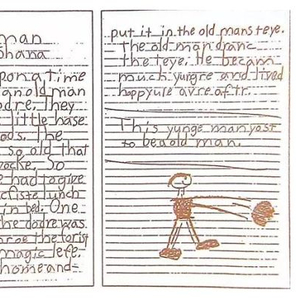 man
hana
pon a time
an old man
odre. They
little hase
ods. The
so old that
wocke. So
e had to give
cfiste lunch
in ted. One
he dodre was
the forist
magic lefe.
home and
put it in the old mans teye.
The old man dranc
the teye. He becam
much yungre and lived
happyule avre aftr.
This yunge man yost
to be a old man.